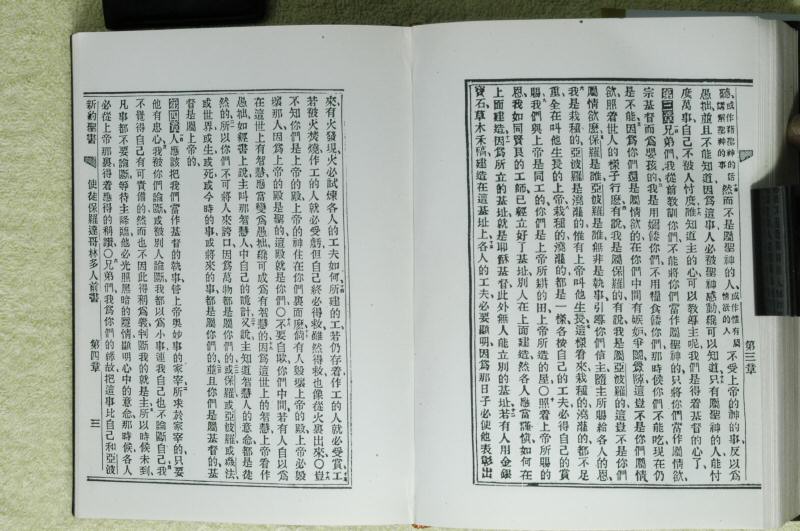 第三章
聽、或作講解聖神的事 然而不是屬聖神的人、或作惟有屬情欲的人 不受上帝的神的事、反以爲
愚拙、並且不能知道、因爲這事人必被聖神感動纔可以知道、只有屬聖神的人、能忖
度萬事、自己不被人忖度、誰知道主的心、可以教導主呢、我們是得着基督的心了、
第三章 兄弟們、我從前教訓你們、不能將你們當作屬聖神的、只將你們當作屬情欲、
宗基督而爲嬰孩的、我是用嬭餧你們、不用糧食餧你們、那時候你們不能吃、現在仍
是不能、因爲你們還是屬情欲的、在你們中間有嫉妒爭鬭、這豈不是你們屬情
欲、照着世人的樣子行麼、有說我是屬保羅的、有說我是屬亞波羅的、這豈不是你們
屬情欲麼、保羅是誰、亞波羅是誰、無非是執事、引導你們信主、隨主所賜給各人的恩、
我是栽種的、亞波羅是澆灌的、惟有上帝叫他生長、這樣看來、栽種的澆灌的、都不足
重、全在叫他生長的上帝、栽種的、澆灌的、都是一樣、各按自己的工夫、必得自己的賞
賜、我們與上帝是同工的、你們是上帝所耕的田、上帝所造的屋、〇照着上帝所賜的
恩、我如同賢良的工師、已經立好了基址、別人在上面建造、然各人應當謹愼如何在
上面建造、因爲所立的基址、就是耶穌基督、此外無人能立別的基址、若有人用金銀
寶石草木禾稿、建造在這基址上、各人的工夫必要顯明、因爲那日子必使他表彰出
來、有火發現、火必試煉各人的工夫如何、所建的工、若仍存着、作工的人就必受賞、工
若被火焚燒、作工的人就必受虧、但自己終必得救、雖然得救、也像從火裏出來、〇豈
不知你們是上帝的殿、上帝的神住在你們裏面麼、倘有人毀壞上帝的殿、上帝必毀
壞那人、因爲上帝的殿是聖的、這殿就是你們、〇不要自欺、你們中間、若有人自以爲
在這世上有智慧、應當變爲愚拙、纔可成爲有智慧的、因爲這世上的智慧、上帝看作
愚拙、如經書上說、主叫那智慧人中自己的詭計、又說、主知道智慧人的意念、都是徒
然的、所以你們不可將人來誇口、因爲萬物都是屬你們的、或保羅、或亞波羅、或磯法、
或世界、或生、或死、或今時的事、或將來的事、都是屬你們的、並且你們是屬基督的、基
督是屬上帝的、
第四章 人應該把我們當作基督的執事、管上帝奧妙事的家宰、所求於家宰的、只要
他有忠心、我被你們論斷、或被別人論斷、我都以爲小事、連我自己也不論斷自己、我
不覺得自己有可責備的、然而也不因此得稱爲義、判斷我的就是主、所以時候未到、
凡事都不要論斷、等待主降臨、他必光照黑暗的隱情、顯明心中的意念、那時候各人
必從上帝那裏得着應得的稱讚、〇兄弟們、我爲你們的緣故、把這事比自己和亞波
新約聖書 使徒保羅達哥林多人前書 第四章 三